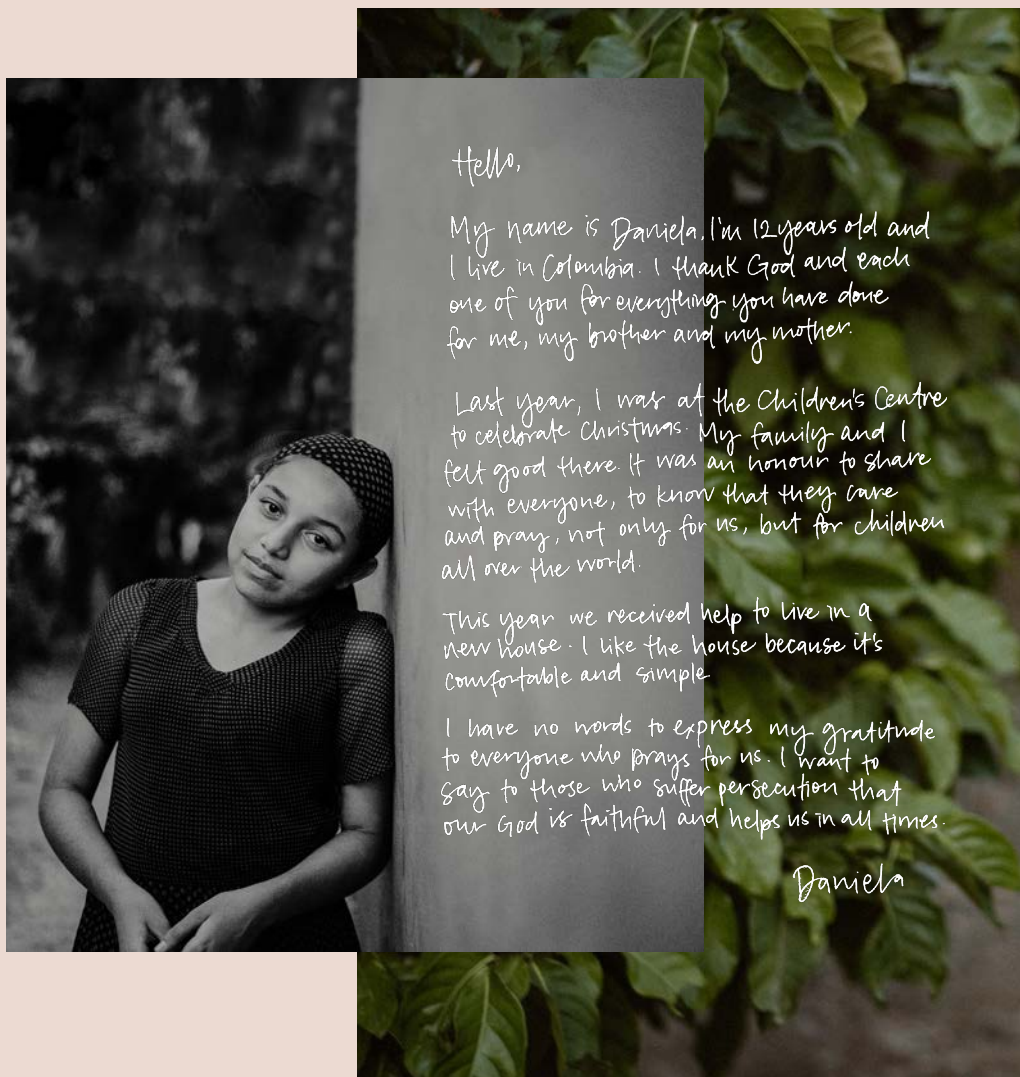 Hello,
My name is Daniela. I'm 12 years old and
I live in Colombia. I thank God and each
one of you for everything you have done
for me, my brother and my mother.
Last year, I was at the Children's Centre
to celebrate Christmas. My family and I
felt good there. It was an honour to share
with everyone, to know that they care
and pray, not only for us, but for children
all over the world.
This year we received help to live in a
new house. I like the house because it's
comfortable and simple
I have no words to express my gratitude
to everyone who prays for us. I want to
say to those who suffer persecution that
our God is faithful and helps us in all times.
Daniela